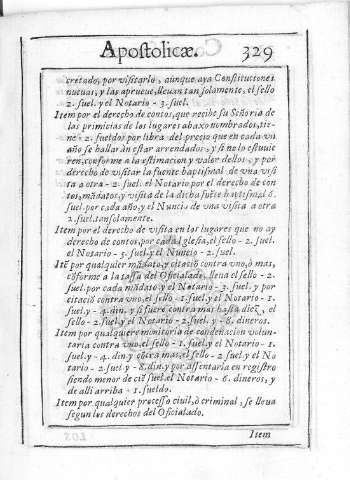 Apostolicæ. 329
cretado, por visitarlo, aunque aya Constituciones
nueuas, y las aprueue, lleuan tansolamente, el sello
2. suel. y el Notario - 3. suel.
Item por el derecho de contos, que recibe su Señoria de
las primicias de los lugares abaxo nombrados, tie-
ne - 2. sueldos por libra del precio que en cada vn
año se hallaràn estar arrendados, y si no lo estuuie
ren, conforme a la estimacion y valor dellos, y por
derecho de visitar la fuente baptismal de vna visi
ta a otra - 2. suel. el Notario por el derecho de con
tos, mādatos, y visita de la dicha fuēte baptismal 6.
suel. por cada año, y el Nuncio de vna visita a otra
2. suel. tansolamente.
Item por el derecho de visita en los lugares que no ay
derecho de contos, por cada Iglesia, el sello - 2. suel.
el Notario - 3. suel. y el Nuncio - 2. suel.
Itē por qualquier mādato, y citaciō contra vno, ò mas,
cōforme a la tassa del Oficialado, lleua el sello - 2.
suel. por cada mādato y el Notario - 3. suel. y por
citaciō contra vno, el sello - 1. suel. y el Notario - 1.
suel. y - 4. din. y si fuere contra mas hasta diez, el
sello - 2. suel. y el Notario - 2. suel. y - 8. dineros.
Item por qualquiere monitoria de condenacion volun-
taria contra vno, el sello - 1. suel. y el Notario - 1.
suel. y - 4. din. y cōtra mas, el sello - 2. suel. y el No
tario - 2. suel. y - 8. din. y por assentarla en registro
siendo menor de ciē suel. el Notario - 6. dineros, y
de alli arriba - 1. sueldo.
Item por qualquier processo ciuil, ò criminal, se lleua
segun los derechos del Oficialado.
Item